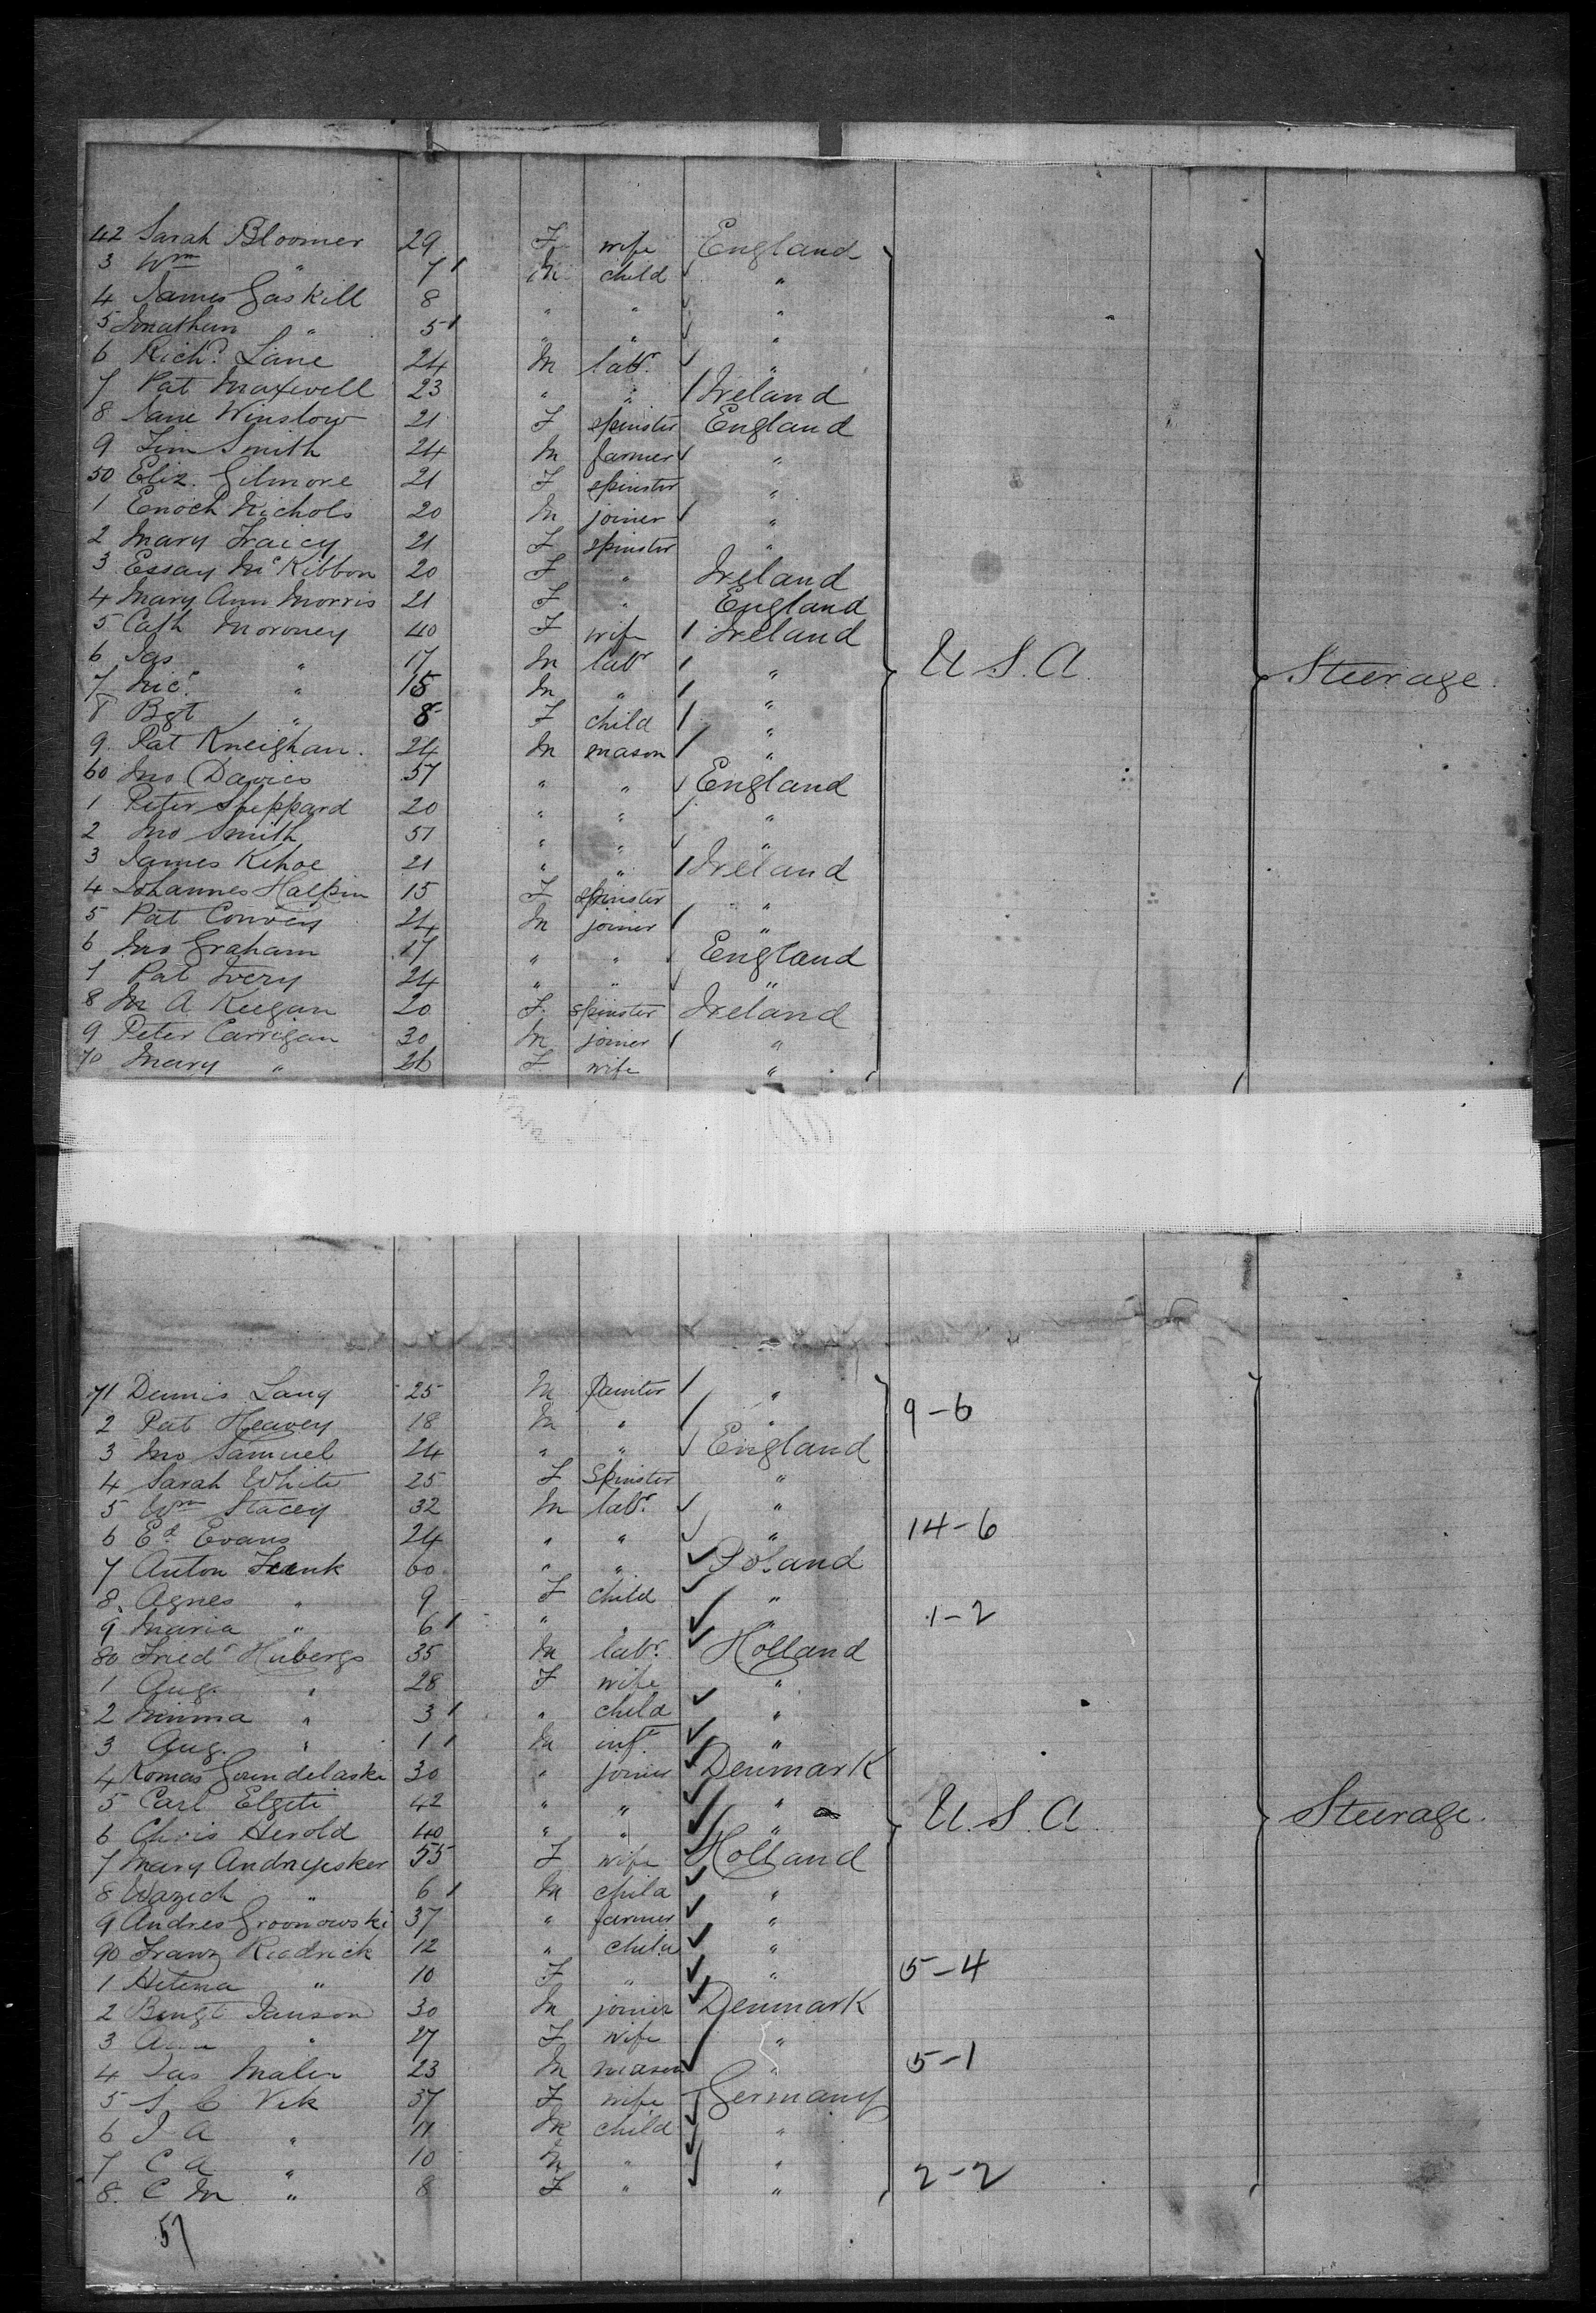 42 Sarah Bloomer 29 F wife England
3 Wm " 7 M child "
4 James Gaskill 8 " " "
5 Jonathan " 5 " " "
6 Richd. Lane 24 M labr. "
7 Pat Maxwell 23 " " Ireland
8 Jane Winslow 21 F spinster England
9 Jim Smith 24 M farmer "
50 Eliz. Gilmore 21 F spinster "
1 Enoch Nichols 20 M joiner "
2 Mary Traicy 21 F spinster "
3 Essay McKibbon 20 F " Ireland
4 Mary Ann Morris 21 F " England
5 Cath Moroney 40 F wife Ireland
6 Jas " 17 M labr "
U.S.A. Steerage.
7 Micl. " 15 M " "
8 Bgt " 8 F child "
9 Pat Kneighan. 24 M mason "
60 Jno Davies 57 " " England
1 Peter Sheppard 20 " " "
2 Jno Smith 51 " " "
3 James Kehoe 21 " " Ireland
4 Johannes Halpin 15 F spinster "
5 Pat Convey 24 M joiner "
6 Jno Graham 17 " " England
7 Pat Ivery 24 " " "
8 M A Keegan 20 F. spinster Ireland
9 Peter Carrigan 30 M joiner "
70 Mary " 26 F wife "
71 Dennis Lang 25 M Painter "
9-6
2 Pat Heavey 18 M " "
3 Jno Samuel 24 " " England
4 Sarah White 25 F Spinster "
5 Wm Stacey 32 M labr. "
6 Ed. Evans 24 " " " 14-6
7 Anton Frank 60 " " Poland
8. Agnes " 9 F child "
9 Maria " 6 " " " 1-2
80 Friedr Hubergs 35 M labr. Holland
1 Aug. " 28 F wife "
2 Minma " 3 " child "
3 Aug. " 1 M inft "
4 Komas Goundelaski 30 " joiner Denmark
5 Carl Elgeti 42 " " "
U.S.A. Steerage.
6 Chris Herold 40 " " "
7 Mary Andryesker 55 F wife Holland
8 Wazich " 6 M child "
9 Andres Groonowski 37 " farmer "
90 Franz Riedrick 12 " child "
1 Helena " 10 F " " 5-4
2 Bengt Janson 30 M joiner Denmark
3 Ann " 27 F wife "
4 Jas Malin 23 M mason " 5-1
5 S C Vik 37 F wife Germany
6 J A " 11 M child "
7 C A " 10 M " "
8. C M " 8 F " " 2-2
57